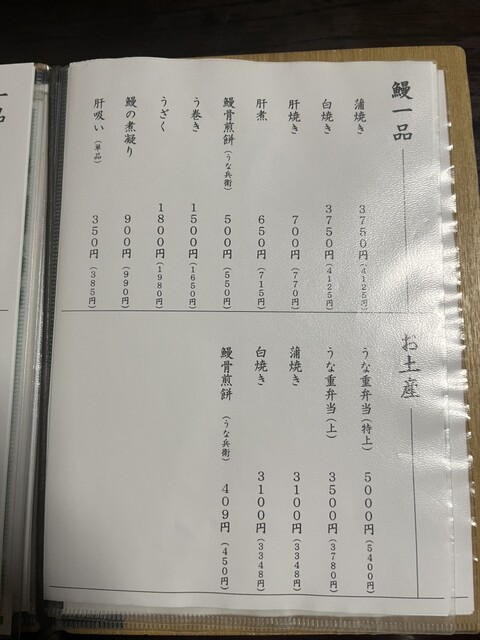 鰻一品
蒲焼き 3750円（4125円）
白焼き 3750円（4125円）
肝焼き 700円（770円）
肝煮 650円（715円）
鰻骨煎餅（うな兵衛） 500円（550円）
う巻き 1500円（1650円）
うざく 1800円（1980円）
鰻の煮凝り 900円（990円）
肝吸い（単品） 350円（385円）
お土産
うな重弁当（特上） 5000円（5400円）
うな重弁当（上） 3500円（3780円）
蒲焼き 3100円（3348円）
白焼き 3100円（3348円）
鰻骨煎餅（うな兵衛） 409円（450円）
一品